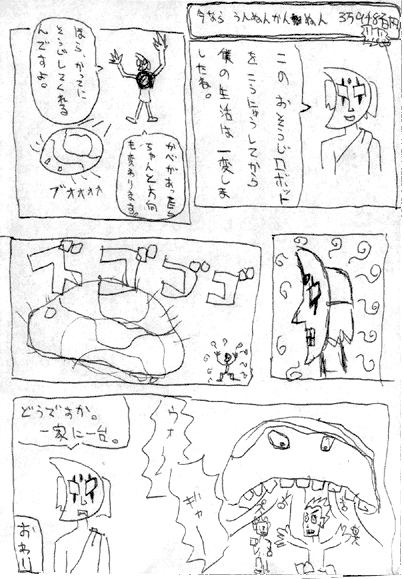 今なら うんぬんかんぬん
この おそうじロボット
をこうにゅうしてから
僕の生活は一変しま
したね。
ほら かってに
そうじしてくれる
んですよ。
かべがあったら
ちゃんと方向
も変わります。
ブオオオオ
ズゴゴゴ
ウォー
ギャー
どうですか。
一家に一台。
おわり